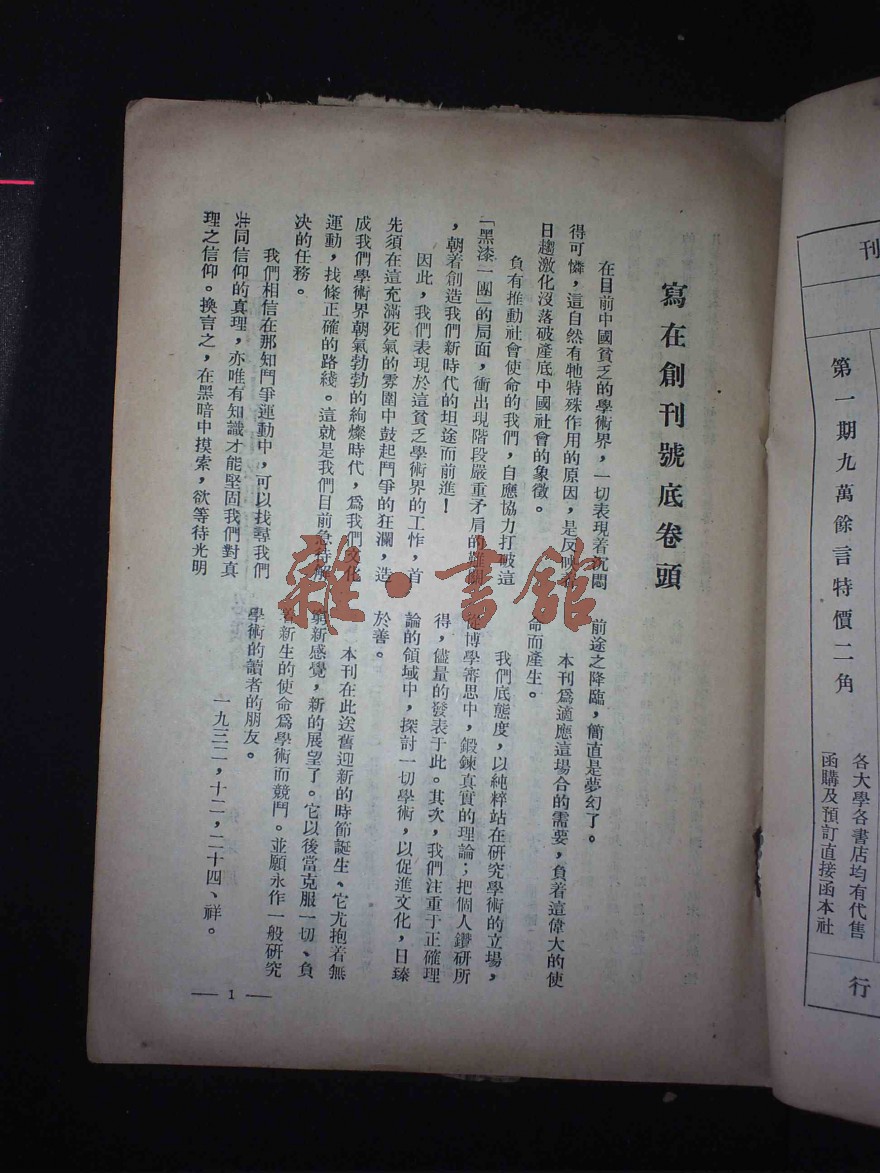 寫在創刊號底卷頭
在目前中國貧乏的學術界，一切表現着沉悶
得可憐，這自然有牠特殊作用的原因，是反映着
日趨激化沒落破產底中國社會的象徵。
負有推動社會使命的我們，自應協力打破這
「黑漆一團」的局面，衝出現階段嚴重矛盾的難關
，朝着創造我們新時代的坦途而前進！
因此，我們表現於這貧乏學術界的工怍，首
先須在這充滿死氣的雰圍中鼓起鬥爭的狂瀾，造
成我們學術界朝氣勃勃的絢燦時代，爲我們文化
運動，找條正確的路綫。這就是我們目前急待解
決的任務。
我們相信在那知鬥爭運動中，可以找尋我們
共同信仰的真理，亦唯有知識才能堅固我們對真
理之信仰。換言之，在黑暗中摸索，欲等待光明
前途之降臨，簡直是夢幻了。
本刊爲適應這場合的需要，負着這偉大的使
命而產生。
我們底態度，以純粹站在研究學術的立場，
從博學審思中，鍛鍊真實的理論；把個人鑽研所
得，儘量的發表于此。其次，我們注重于正確理
論的領域中，探討一切學術，以促進文化，日臻
於善。
本刊在此送舊迎新的時節誕生、它尤抱着無
窮新感覺，新的展望了。它以後當克服一切、負
着新生的使命爲學術而競鬥。並願永作一般研究
學術的讀者的朋友。
一九三二，十二，二十四、祥。
— 1 —
刊
第一期九萬餘言特價二角
各大學各書店均有代售
函購及預訂直接函本社
行
雜·書館